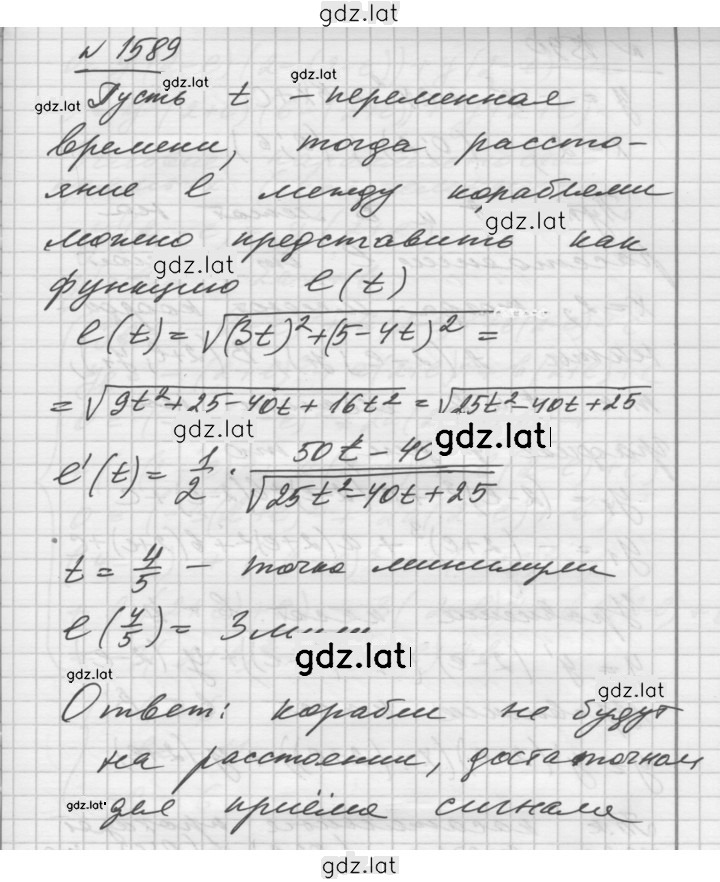 gdz.lat
N 1589
gdz.lat
gdz.lat
gdz.lat
Пусть t – переменная
времени, тогда рассто-
яние l между кораблями
gdz.lat
можно представить как
gdz.lat
функцию l(t)
l(t) = √(3t)²+(5-4t)² =
= √9t²+25-40t+16t² = √25t²-40t+25
gdz.lat
gdz.lat
l'(t) = 1/2 · 50t-40/√25t²-40t+25
t = 4/5 – точка минимума
l(4/5) = 3
gdz.lat
gdz.lat
gdz.lat
Ответ: корабли не будут
на расстоянии, достаточном
gdz.lat
для приёма сигнала
gdz.lat